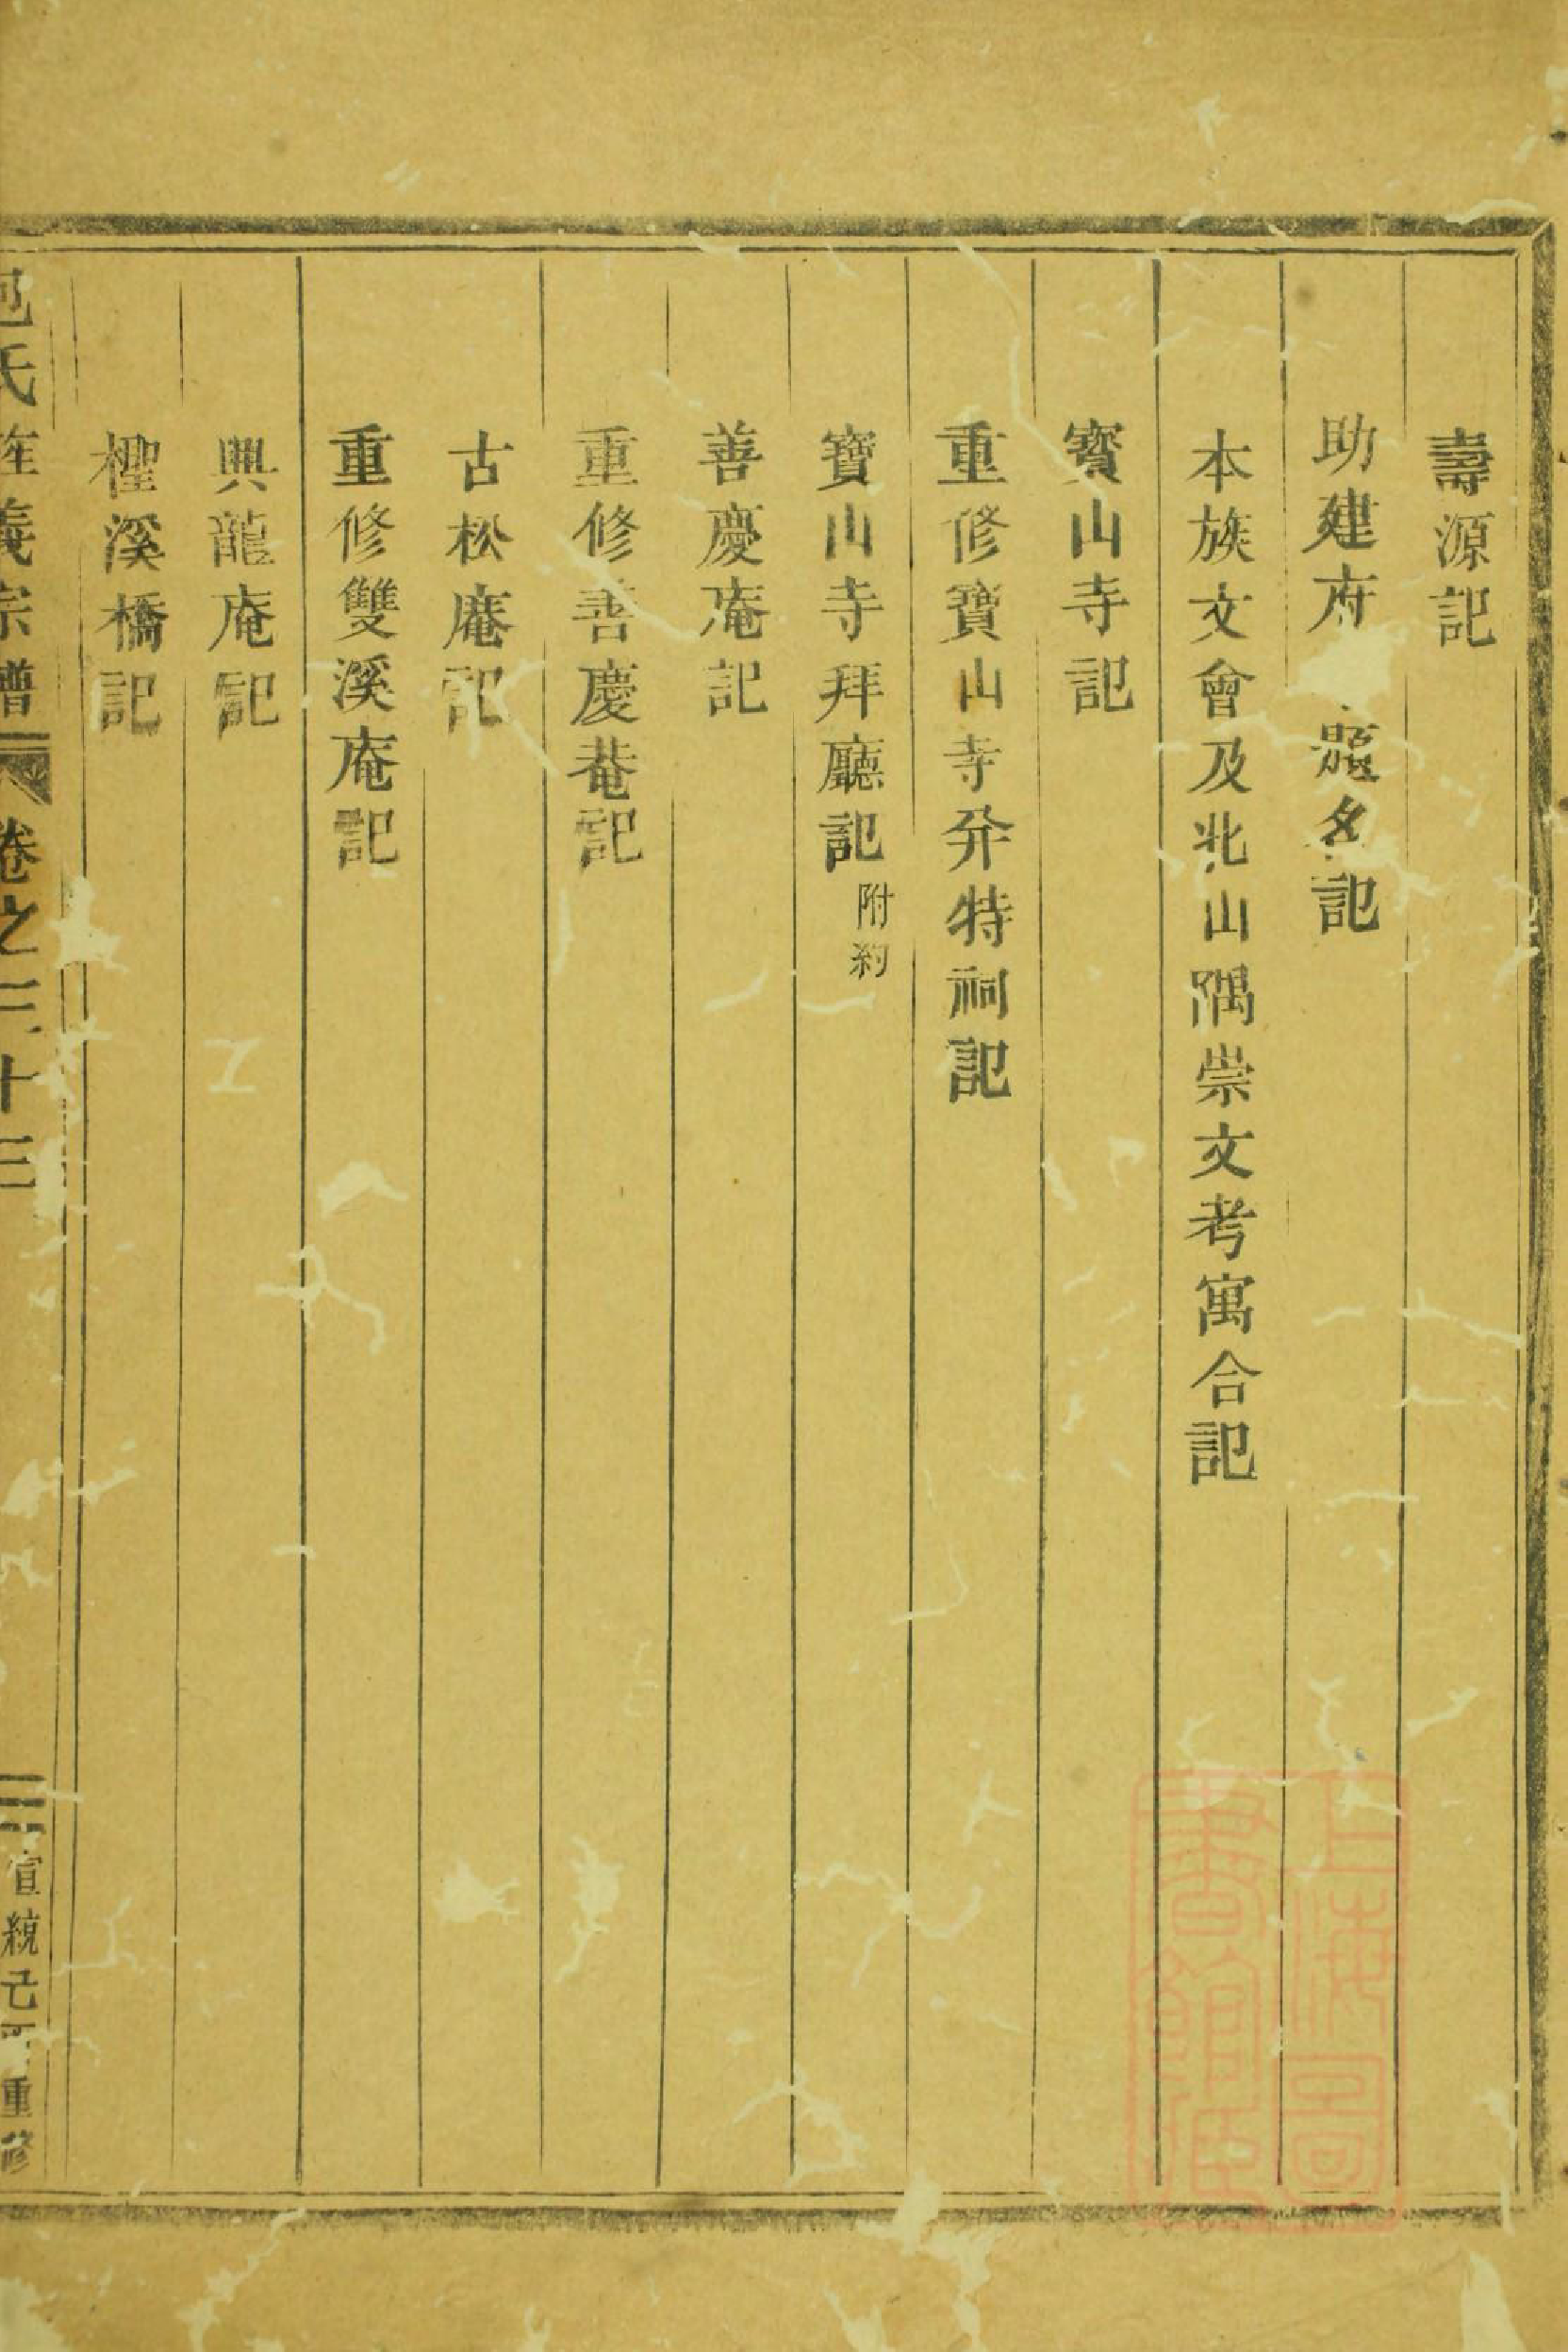 壽源記
助建府題名記
本族文會及北山隅崇文考寓合記
寶山寺記
重修寶山寺幷特祠記
寶山寺拜廳記附約
善慶庵記
重修善慶菴記
古松庵記
重修雙溪庵記
興龍庵記
檉溪橋記
氏旌義宗譜 卷之三十三 宣統己酉重修
上海圖書館藏